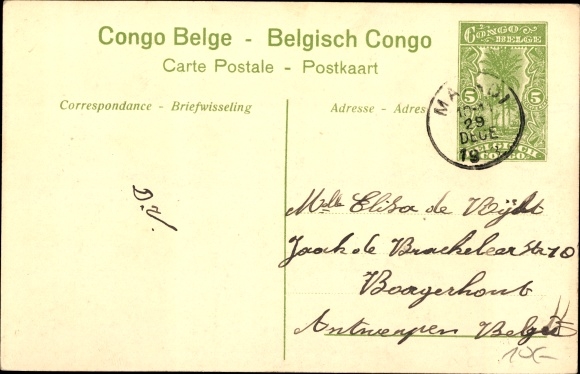 Congo Belge - Belgisch Congo
Carte Postale - Postkaart
Correspondance - Briefwisseling
Adresse - Adres
CONGO
BELGE
5 5
BELGISCH
CONGO
29
DECE
19
D.V.
Mlle Elisa de
Jaak de Brackeleer str 70
Borgerhout
Antwerpen België